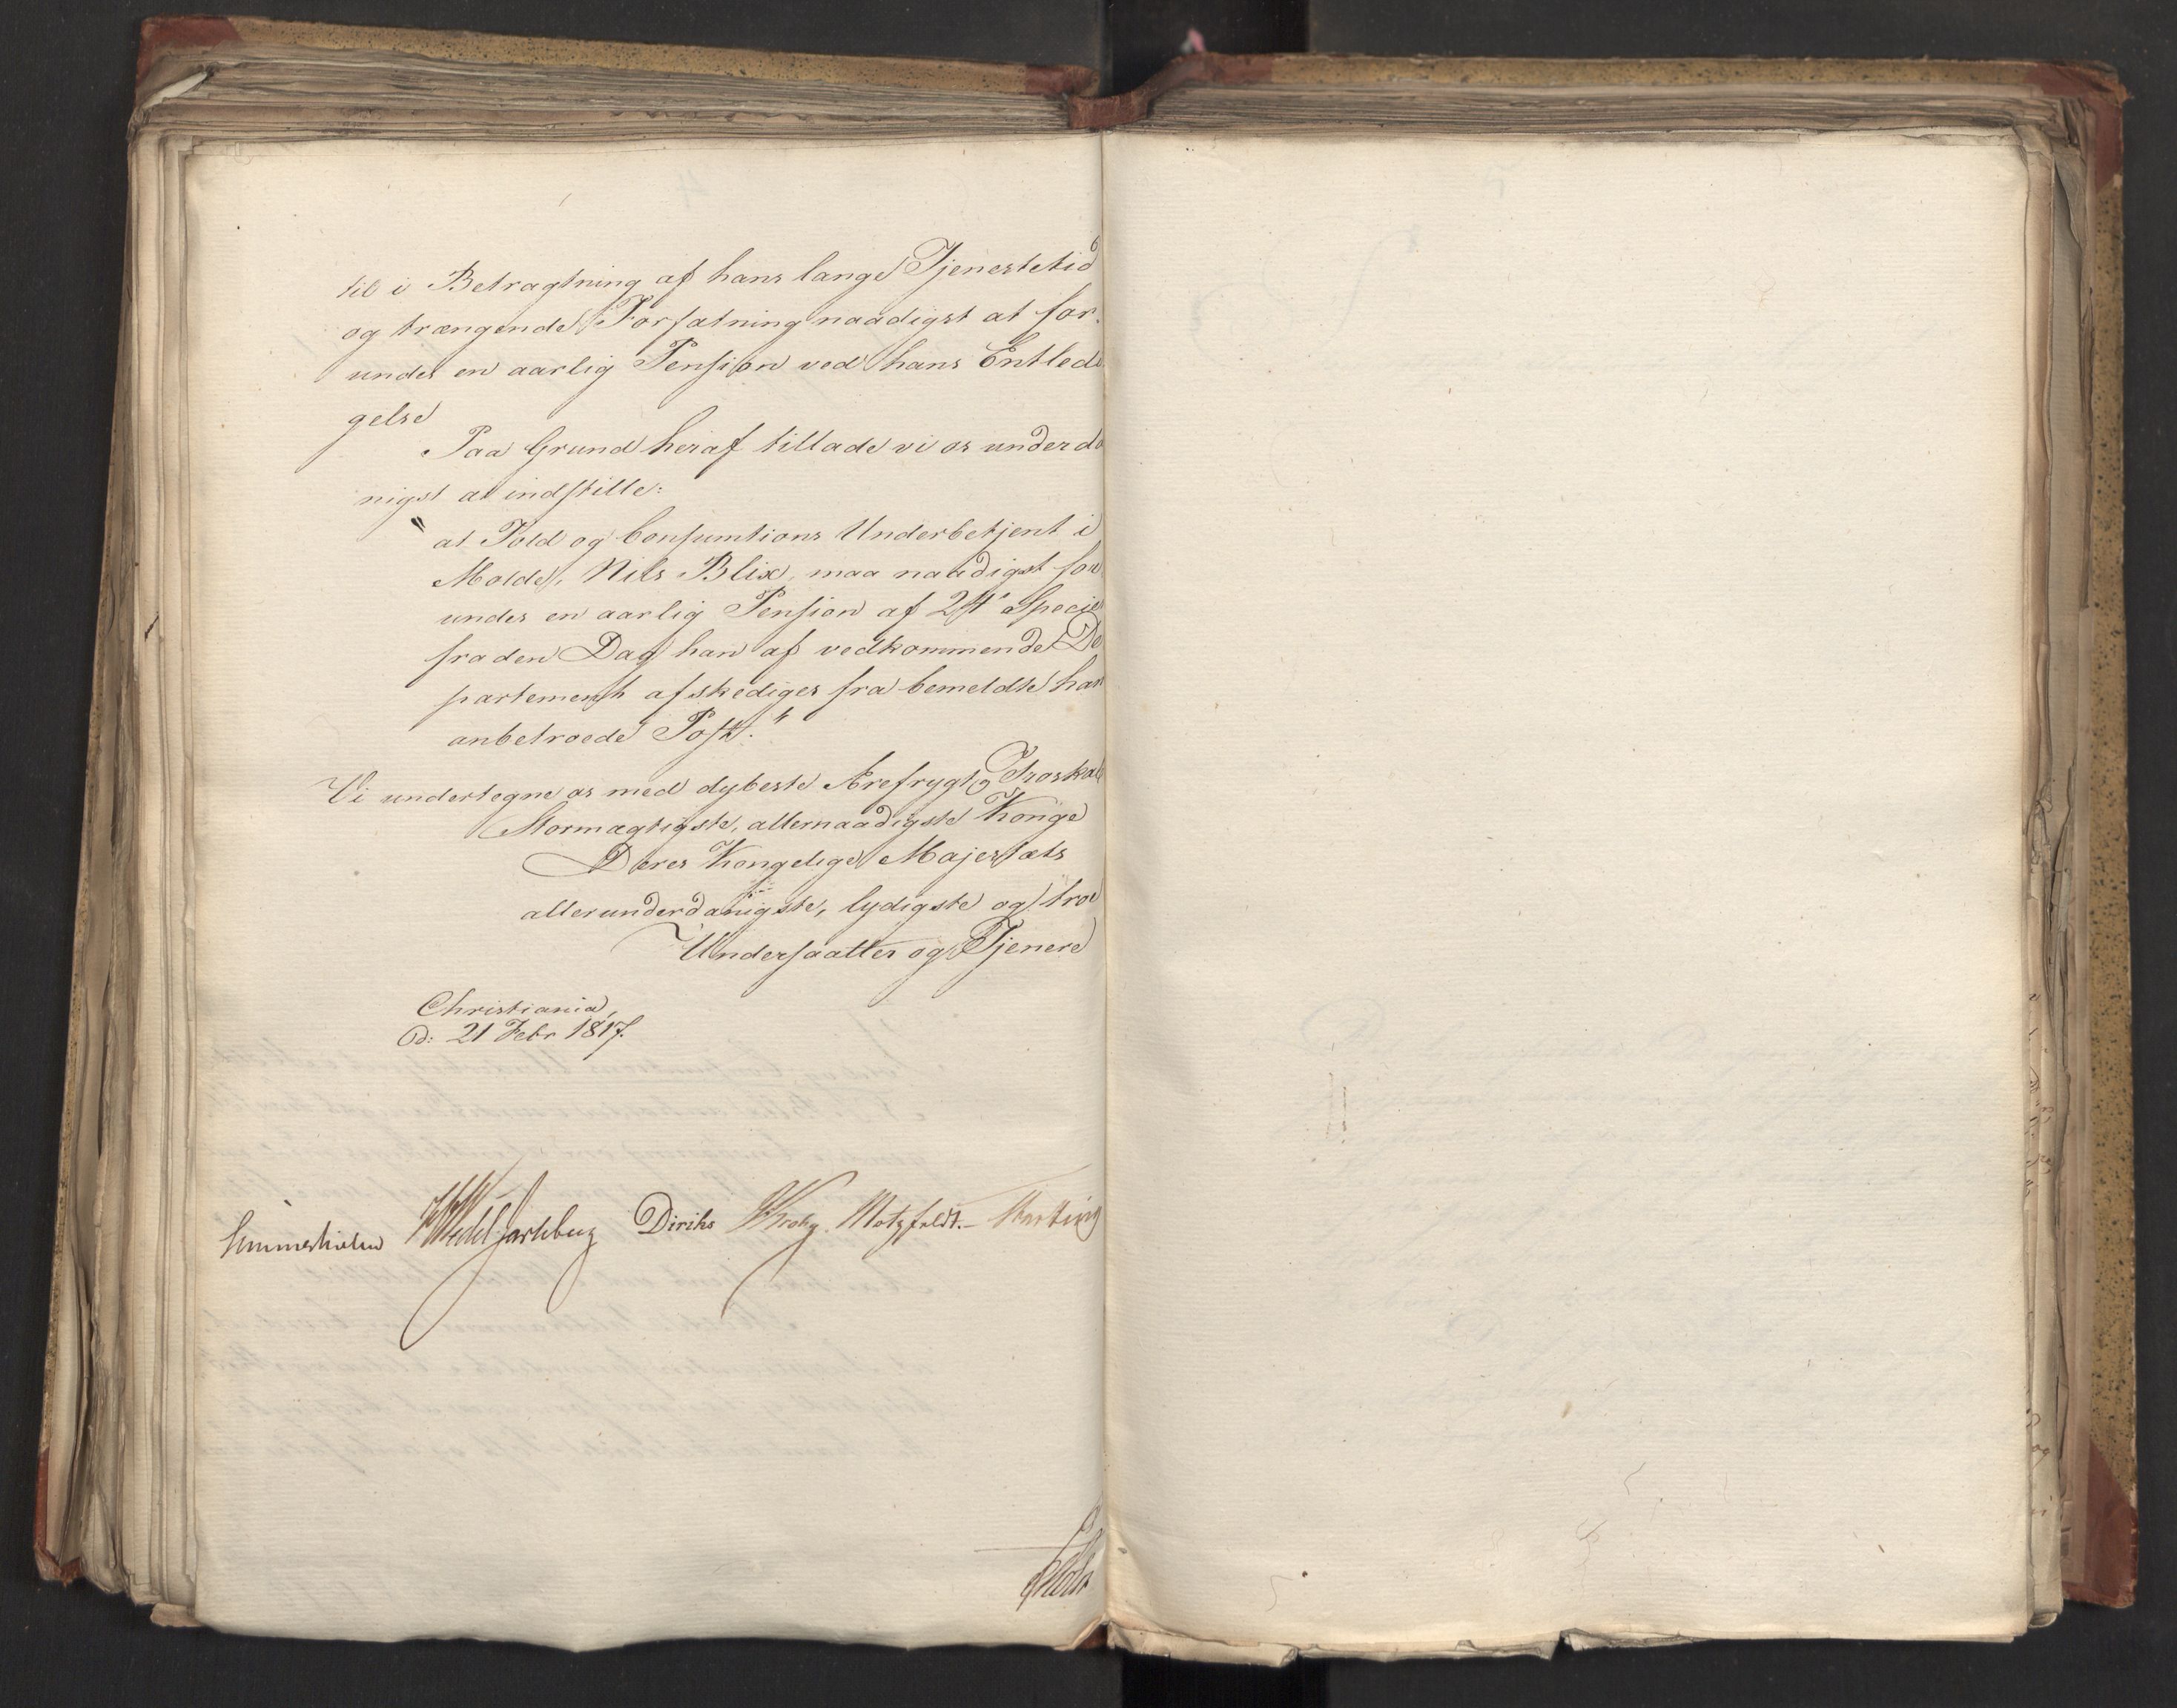 til i Betragtning af hans lange Tjenestetid
og trængende Forfatning naadigst at for-
undes en aarlig Pension ved hans Entledi
gelse
Paa Grund heraf tillade vi os underda
nigst at indstille:
"at Told og Consumtions Underbetjent i
Molde, Nils Blix, maa naadigst for
undes en aarlig Pension af Specie
fra den Dag han af vedkommende De
partement afskediges fra bemeldte ham
anbetroede Post."
Vi undertegne os med dybeste Ærefrygt og Troskab
Stormægtigste, allernaadigste Konge
Deres Kongelige Majestæts
allerunderdanigste, lydigste og troe
Undersaatter og Tjenere
Christiania,
d: 21 Febr 1817.
Sommerhielm Wedel Jarlsberg Diriks Krohg. Motzfeldt.-